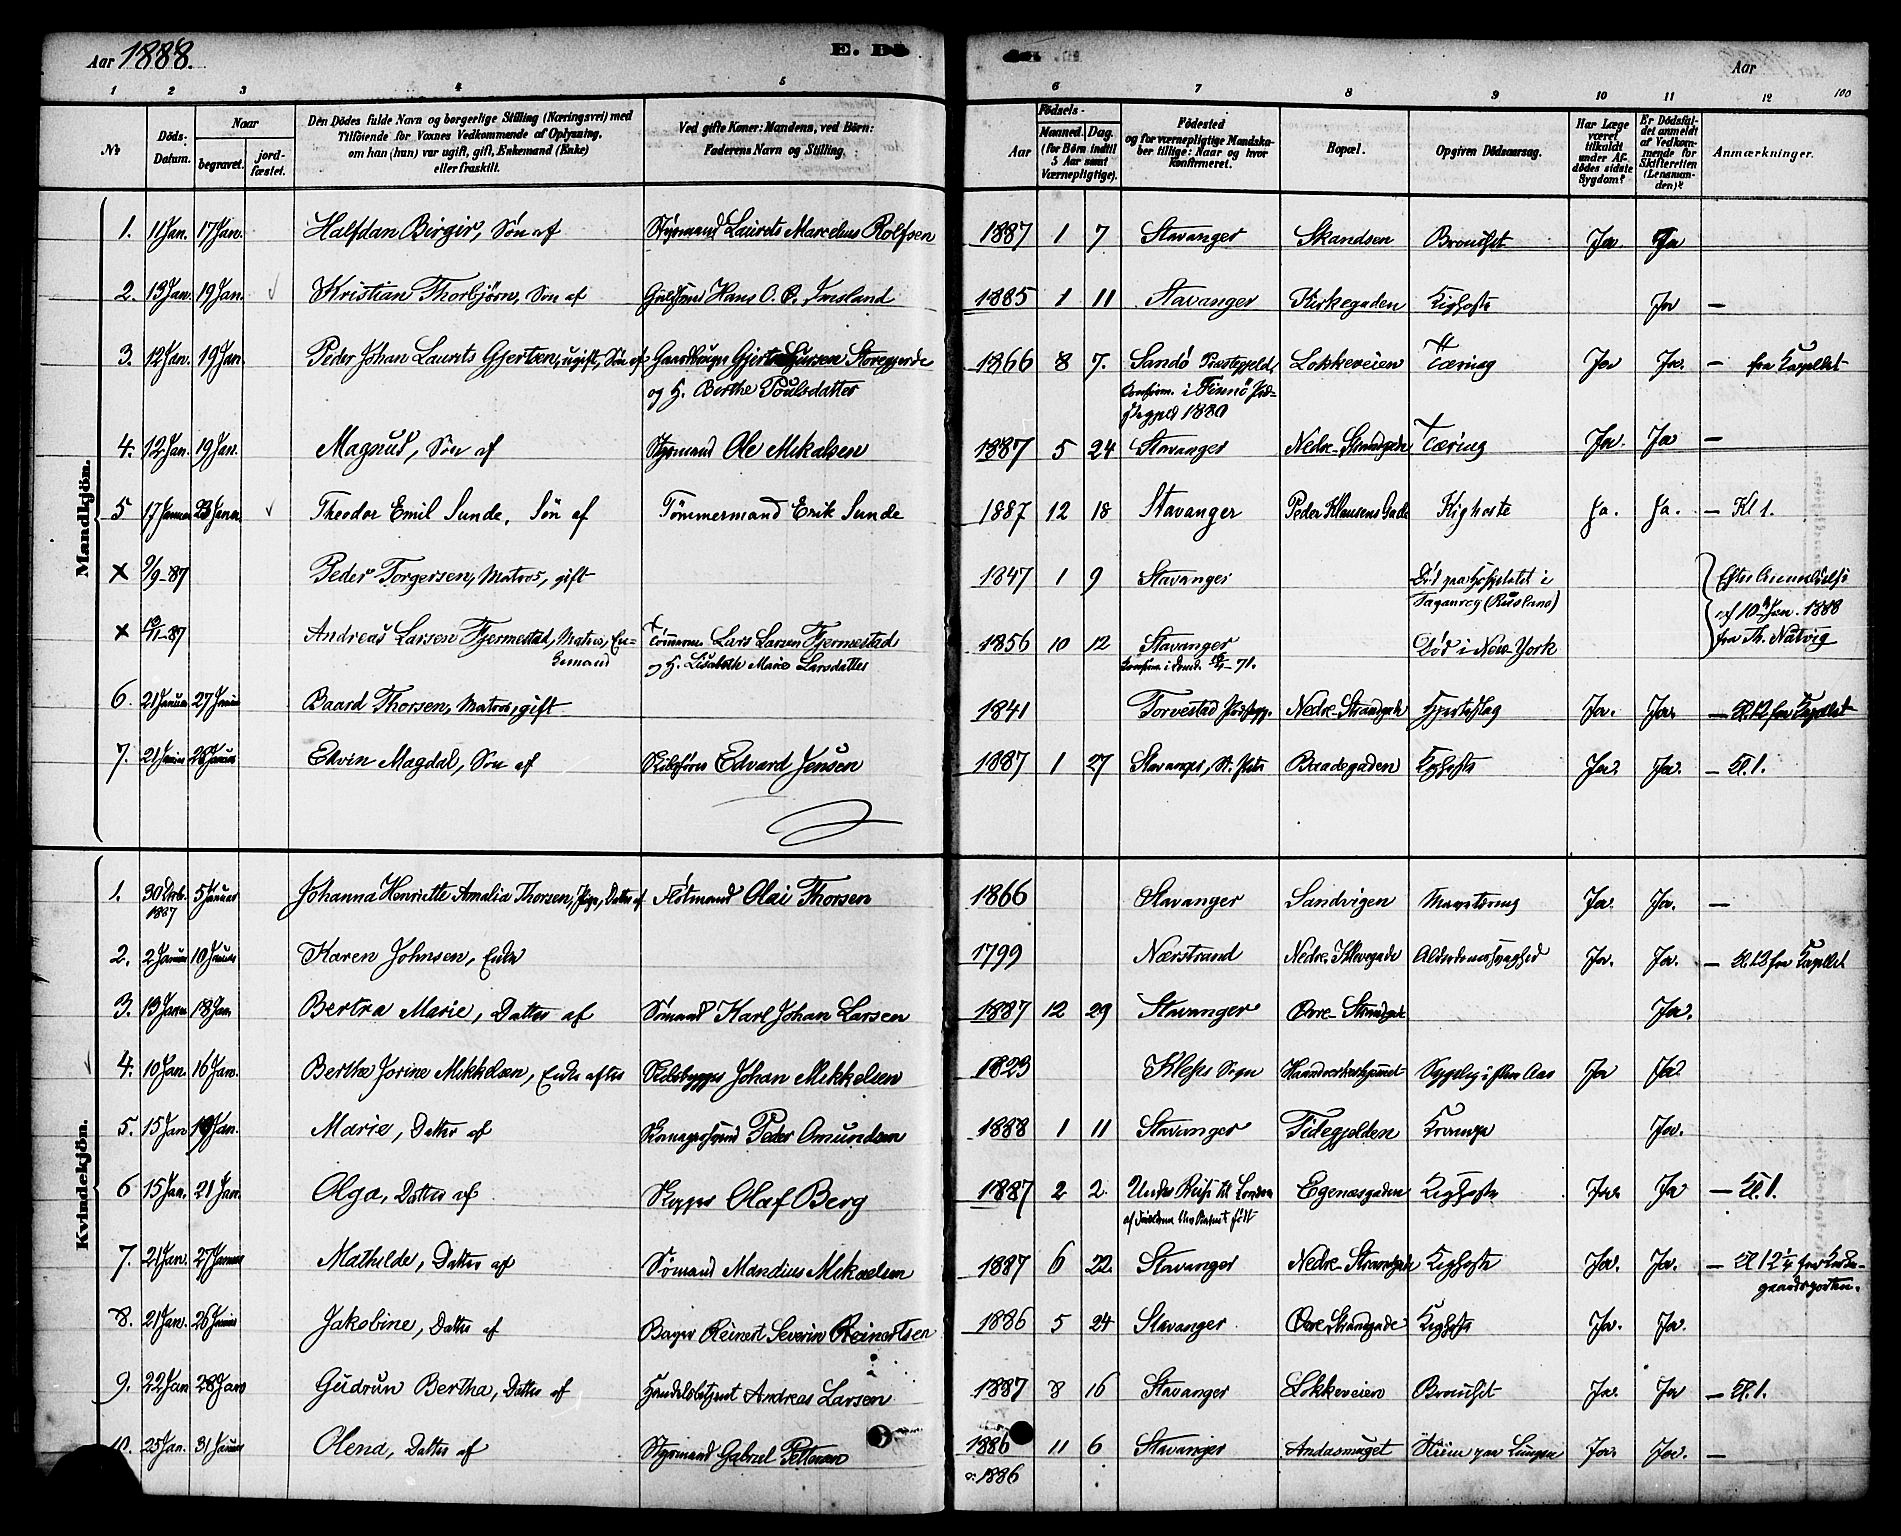 Aar 1888. E. Dö Aar
1 2 3 4 5 6 7 8 9 10 11 12 100
Nr. Döds-Datum. Naar begravet. jordfæstet. Den Dödes fulde Navn og borgerlige Stilling (Næringsvei) med Tilföiende for Voxnes Vedkommende af Oplysning, om han (hun) var ugift, gift, Enkemand (Enke) eller fraskilt. Ved gifte Koner: Mandens, ved Börn: Faderens Navn og Stilling. Födsels- Aar Maaned. Dag. (for Börn indtil 5 Aar samt Værnepligtige). Födested og for værnepligtige Mandskaber tillige: Naar og hvor Konfirmeret. Bopæl. Opgiven Dödsaarsag. Har Læge været tilkaldt under Afdödes sidste Sygdom? Er Dödsfaldet anmeldt af Vedkommende for Skifteretten (Lensmanden)? Anmærkninger.
Mandkjön.
1. 11 Jan. 17 Jan. Halfdan Birgir, Søn af Styrmand Laurets Marcelius Rolfsen 1887 1 7 Stavanger Skandsen Bronchit Ja Ja
2. 13 Jan. 19 Jan. Kristian Thorbjørn, Søn af Hans O. P. 1885 1 11 Stavanger Kirkegaden Kighoste Ja —
3. 12 Jan. 19 Jan. Peder Johan Laurets Gjertsen, ugift, Søn af Gaardbruger Storegjerde 1866 8 7. Sandö Præstegjeld, Lokkeveien Tæring Ja Ja. — fra Kapellet
og H. Berthe Poulsdatter Konfirm. i Finnö 1880
4. 12 Jan. 19 Jan. Magnus, Søn af Styrmand Ole Mikalsen 1887 5 24 Stavanger Nedre Strandgade Tæring Ja. Ja —
5 17 Januar 23 Januar Theodor Emil Sunde, Søn af Tömmermand Erik Sunde 1887 12 18 Stavanger Peder Klausens Gade Kighoste Ja. Ja. — Kl 1.
x 9/9-87 Peder Torgersen, Matros, gift 1847 1 9 Stavanger Död paa Hospitalet i Taganrog (Rusland) Efter Anmeldelse
x -87 Andreas Larsen Fjermestad, Matros, Enkemand Lars Larsen Fjermestad 1856 10 12 Stavanger Död i New York af 10de Jan. 1888
og H. Lisabeth Marie Larsdatter Konfirm. i Domk. -71. fra Th. Natvig
6. 21 Januar 27 Januar Baard Thorsen, Matros, gift 1841 Torvestad Nedre Strandgade Hjerteslag Ja. Ja. — Kl. 12 fra Kapellet
7. 21 Januar 28 Januar Edvin Magdal, Søn af Skibsfører Edvard Jensen 1887 1 27 Stavanger, St. Petri Baadegaden Kighoste Ja. Ja. — Kl. 1.
Kvindekjön.
1. 30 Decb. 1887 5 Januar Johanna Henriette Amalia Thorsen, Pige, Datter af Olai Thorsen 1866 Stavanger Sandvigen Ja. Ja. —
2. 2 Januar 10 Januar Karen Johnsen, Enke 1799 Nærstrand Nedre Klevegade Alderdomssvaghed Ja. Ja. — fra Kapellet
3. 13 Januar 18 Jan Bertra Marie, Datter af Sømand Karl Johan Larsen 1887 12 29 Stavanger Øvre Strandgade Ja.
4. 10 Jan. 16 Jan. Berthe Jorine Mikkelsen, Enke efter Skibsbygger Johan Mikkelsen 1823 Klep Sogn Ja Ja.
5. 15 Jan 19 Jan. Marie, Datter af Peder Omundsen 1888 1 11 Stavanger Fidegjelden Krampe Ja.
6 15 Jan. 21 Jan. Olga, Datter af Skipper Olaf Berg 1887 2 2. Under Reise til London Egenæsgaden Kighoste Ja. Ja — Kl. 1.
7. 21 Jan. 27 Januar Mathilde, Datter af Sømand Mandius Mikaelsen 1887 6 22. Stavanger Nedre Strandgade Kighoste Ja. Ja. — Kl. 12¼ fra Kirkegaardsporten.
8. 21 Jan. 26 Januar Jakobine, Datter af Bager Reinert Severin Reinertsen 1886 5 24 Stavanger. Øvre Strandgade Kighoste Ja. Ja.
9. 22 Jan 28 Jan Gudrun Bertha, Datter af Handelsbetjent Andreas Larsen 1887 8 16 Stavanger Lokkeveien Bronchit Ja. Ja — Kl. 1.
10. 25 Jan. 31 Januar Olena, Datter af Styrmand Gabriel Pettersen 1886 11 6 Stavanger Andasmuget Ja. Ja. —
1886